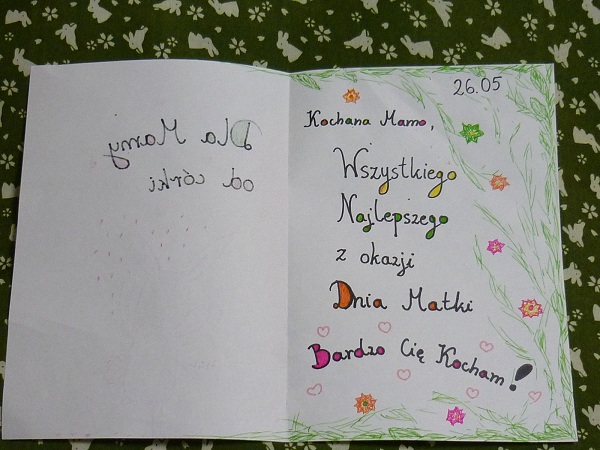 Dla Mamy
od córki
26.05
Kochana Mamo,
Wszystkiego
Najlepszego
z okazji
Dnia Matki
Bardzo Cię Kocham!